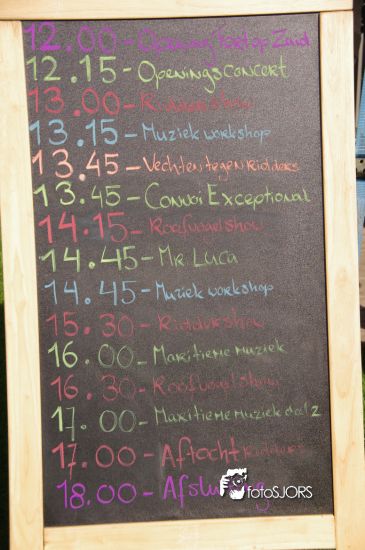 12.00 - Opening Toet op Zuid
12.15 - Openingsconcert
13.00 - Riddershow
13.15 - Muziek workshop
13.45 - Vechten tegen Ridders
13.45 - Connoi Exceptional
14.15 - Roofvogelshow
14.45 - Mr Luca
14.45 - Muziek workshop
15.30 - Riddershow
16.00 - Maritieme muziek
16.30 - Roofvogelshow
17.00 - Maritieme muziek deel 2
17.00 - Aftocht ridders
18.00 - Afsluiting
fotoSJORS